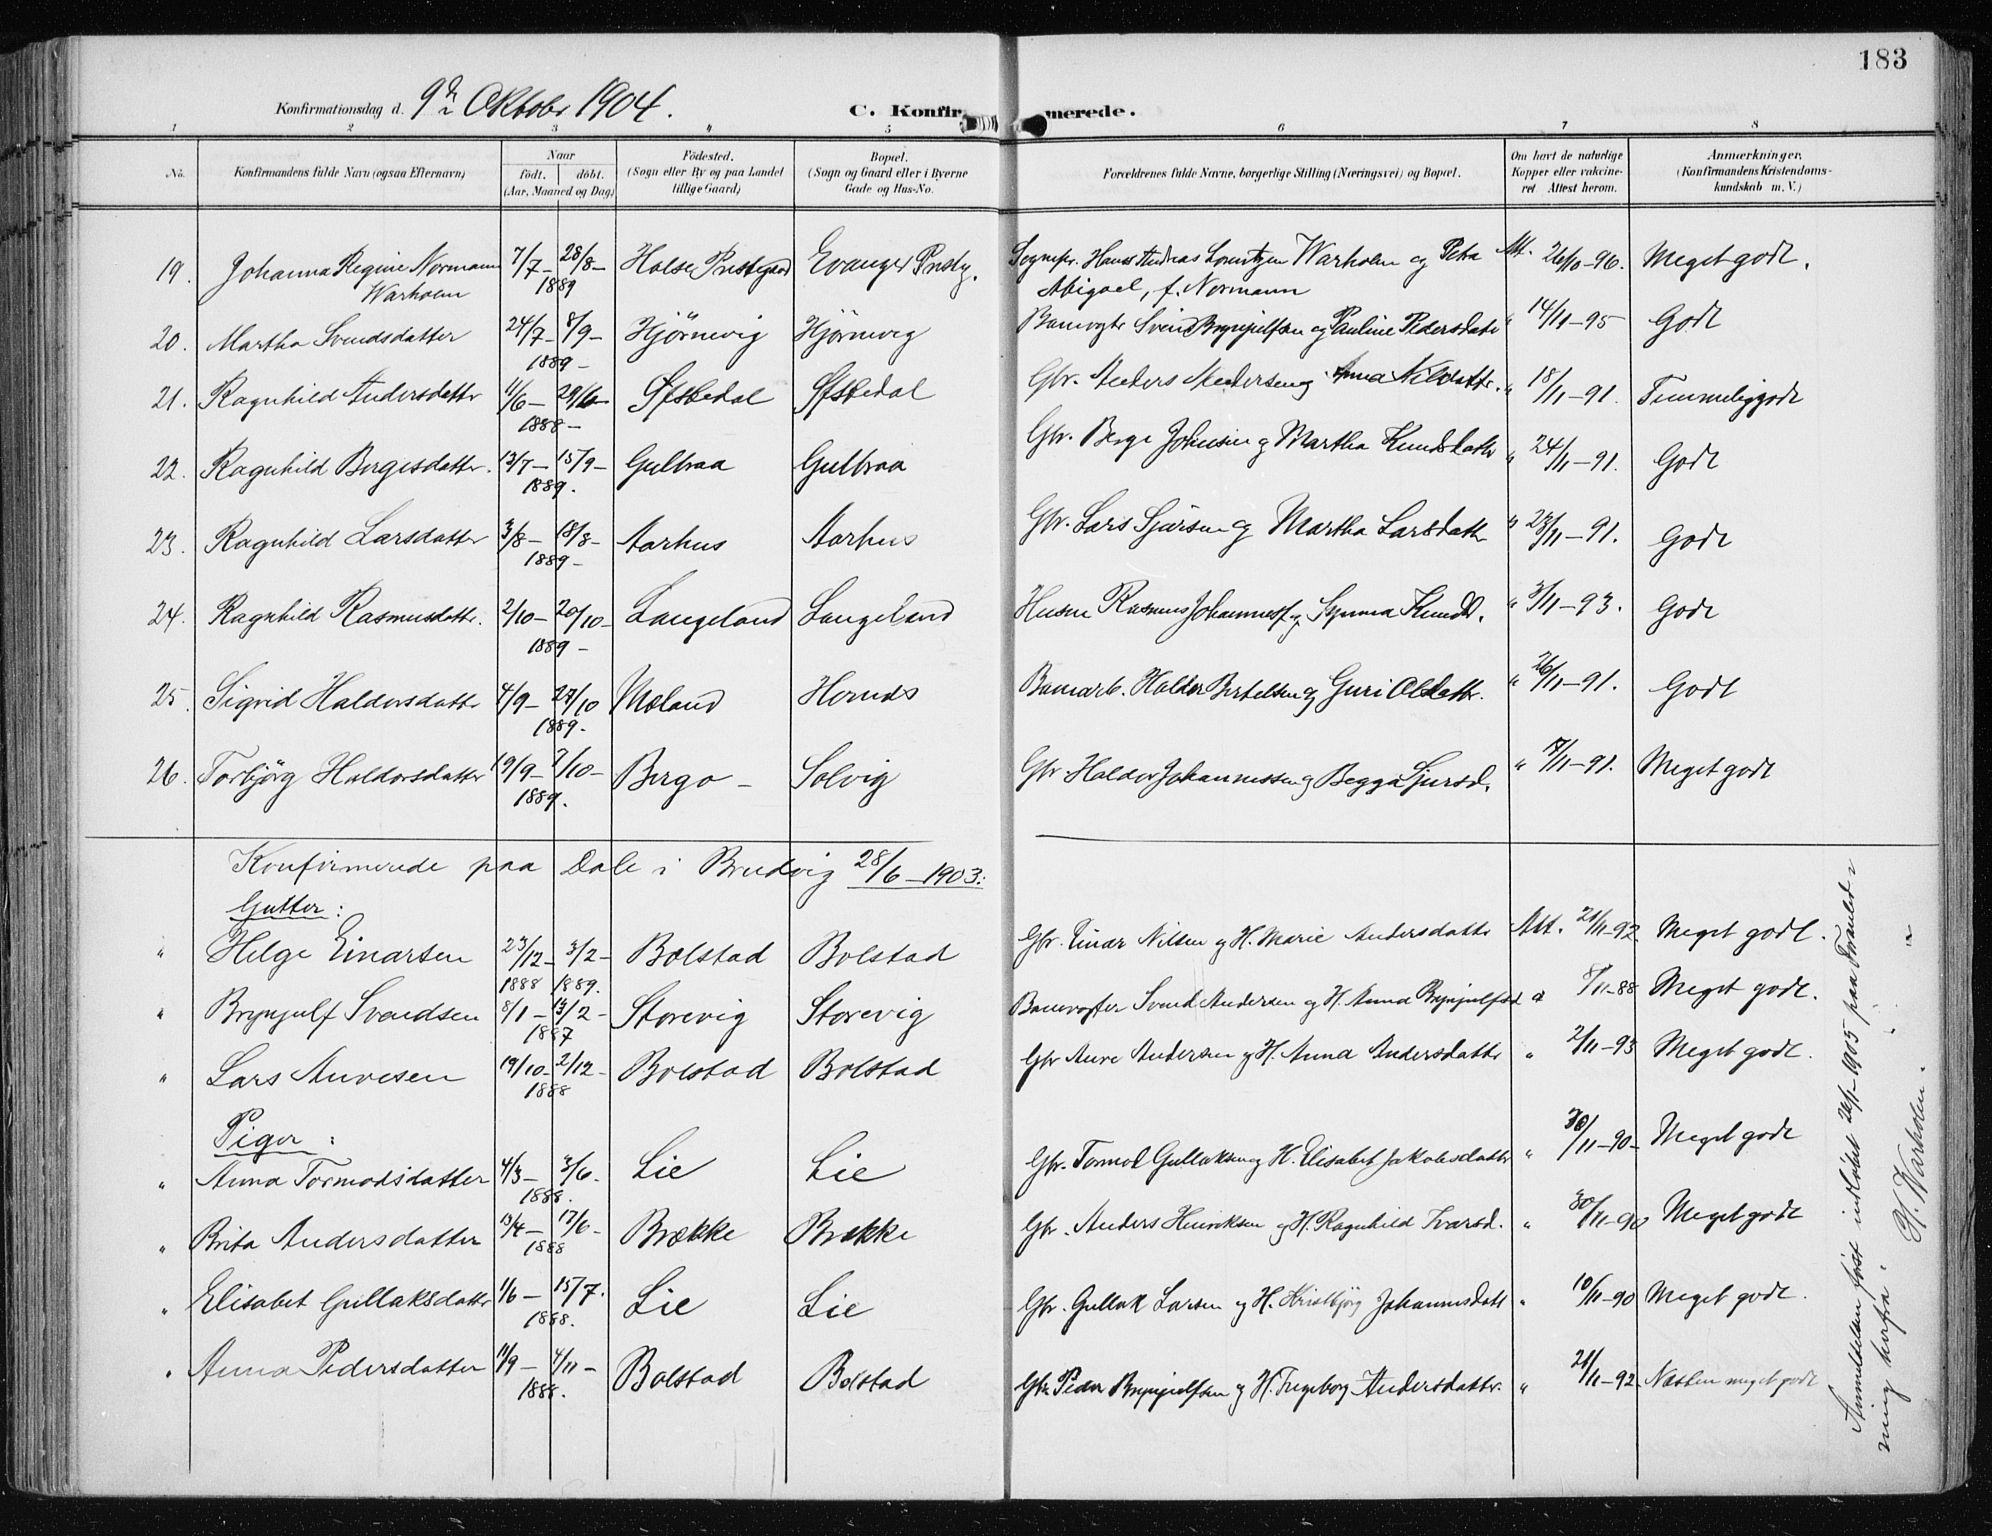 183
Konfirmationsdag d. 9de Oktober 1904.
C. Konfirmerede.
1 2 3 4 5 6 7 8
No. Konfirmandens fulde Navn (ogsaa Efternavn) Naar født. døbt. (Aar, Maaned og Dag) Fødested. (Sogn eller By og paa Landet tillige Gaard) Bopæl. (Sogn og Gaard eller i Byerne Gade og Hus-No. Forældrenes fulde Navne, borgerlige Stilling (Næringsvei) og Bopæl. Om havt de naturlige Kopper eller vakcineret Attest herom. Anmærkninger. (Konfirmandens Kristendomskundskab m. V.)
19. Johanna Regine Normann 7/7- 28/8- Halse Prestegaard Evanger Prestg. Sognepr. Hans Andreas Lorentzen Warholm og Petra Att. 26/10-96. Meget godt.
Warholm 1889 Abigael, f. Normann
20. Martha Svendsdatter 24/7- 8/9- Hjørnevig Hjørnevig Banevogter Svein Brynjulfsen og Pauline Pedersdatr " 14/11-95 Godt
1889-
21. Ragnhild Andersdatter 11/6- 29/6- Øfstedal Øfstedal Gbr. Anders Andersen og Anna Nilsdattr. " 18/11-91. Temmelig godt
1888-
22. Ragnhild Bergesdatter. 13/7- 15/9- Gulbraa Gulbraa Gbr. Berge Johnsen og Martha Knudsdattr " 24/11-91. Godt
1889.
23. Ragnhild Larsdatter 3/8- 18/8- Aarhus Aarhus Gbr. Lars Sjursen og Martha Larsdattr " 23/11-91. Godt
1889-
24. Ragnhild Rasmusdattr. 2/10- 20/10- Langeland Langeland Husm. Rasmus Johannesf. og Synneva Knudsd. " 3/11-93. Godt
1889-
25. Sigrid Haldorsdatter 4/9- 27/10 Mæland Hernes Banearb. Haldor Bertelsen og Guri Olsdattr. " 26/11-91. Godt
1889.
26. Torbjørg Haldorsdatter 19/9- 7/10- Bergo - Solvig Gbr Haldor Johannessen og Begga Sjursd. " 17/11-91. Meget godt
1889.
Konfirmerede paa Dale i Bruvig 28/6-1903:
Gutter:
" Helge Einarsen 23/12- 3/2- Bolstad Bolstad Gbr. Einar Nilsen og H. Marie Andersdattr Att. 21/11-92. Meget godt.
1888 1889.
" Brynjulf Svendsen 8/1- 13/2- Storevig Storevig Banevogter Svend Andersen og H. Anna Brynjulfsd " 8/11-88 Meget godt.
1887
" Lars Anvesen 19/10- 2/12- Bolstad Bolstad Gbr Anve Andersen og H. Anna Andersdattr " 2/11-93 Meget godt.
1888
Piger:
" Anna Tormodsdatter 4/3- 3/6. Lie Lie Gbr. Tormod Gullaksen og H. Elisabet Jakobsdattr " 30/11-90- Meget godt
1888.
" Brita Andersdatter 13/4- 17/6- Brække Brække Gbr. Anders Henriksen og H. Ragnhild Ivarsd. " 30/11-90 Meget godt
1888
" Elisabet Gullaksdattr 1/6- 15/7. Lie Lie Gbr. Gullak Larsen og H. Kristbjørg Johannesdatt " 10/11-90 Meget godt.
1888.
" Anna Pedersdatter 11/9- 4/11- Bolstad Bolstad Gbr Peder Brynjulfsen og H. Ingeborg Andersdattr. " 21/11-92. Næsten meget godt
1888.
Anmeldelsen først indløbet 26/1-1905 paa Foranledning herfra.
H. Warholm.